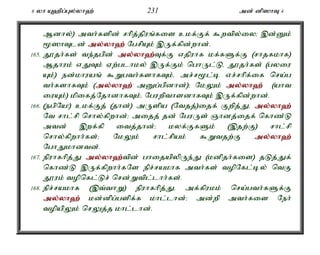 6 லா யுஹிப்புல்லாஹ் 231 அன் னிஸாவு 4
ஆனால்) அவர்களின் சரித்திரங்களை உமக்குக் கூறவில்லை; இன்னும்
மூஸாவுடன் அல்லாஹ் பேசியும் இருக்கின்றான்.
165. தூதர்கள் வந்தபின் அல்லாஹ்வுக்கு எதிராக மக்களுக்கு (சாதகமாக)
ஆதாரம் எதுவும் ஏற்படாமல் இருக்கும் பொருட்டு, தூதர்கள் (பலரை
யும்) நன்மாராயங் கூறுபவர்களாகவும், அச்சமூட்டி எச்சரிக்கை செய்ப
வர்களாகவும் (அல்லாஹ் அனுப்பினான்); மேலும் அல்லாஹ் (யாவ
ரையும்) மிகைத்தோனாகவும், பேரறிவாளனாகவும் இருக்கின்றான்.
166. (நபியே!) உமக்குத் (தான்) அருளிய (வேதத்)தைக் குறித்து, அல்லாஹ்
வே சாட்சி சொல்கிறான்; அதைத் தன் பேரருள் ஞானத்தைக் கொண்டு
அவன் இறக்கி வைத்தான்; மலக்குகளும் (இதற்கு) சாட்சி
சொல்கிறார்கள்; மேலும் சாட்சியம் கூறுவதற்கு அல்லாஹ்
போதுமானவன்.
167. நிராகரித்து அல்லாஹ்வின் பாதையிலிருந்து (மனிதர்களை) தடுத்துக்
கொண்டு இருக்கிறார்களே நிச்சயமாக அவர்கள் வழிகேட்டில் வெகு
தூரம் வழிகெட்டுச் சென்றுவிட்டார்கள்.
168. நிச்சயமாக (இவ்வாறு) நிராகரித்து, அக்கிரமம் செய்பவர்களுக்கு
அல்லாஹ் மன்னிப்பளிக்க மாட்டான்; அன்றி அவர்களை நேர்
வழியிலும் செலுத்த மாட்டான்.